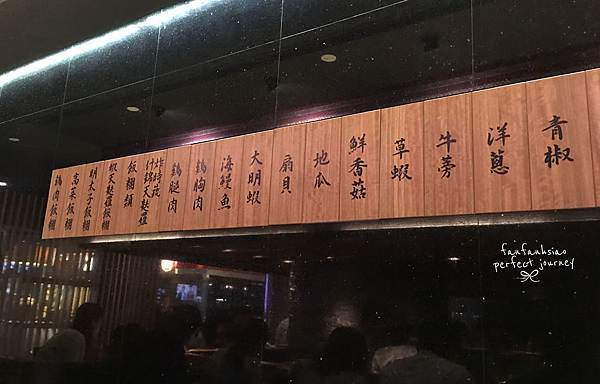 青椒
洋蔥
牛蒡
草蝦
鮮香菇
地瓜
扇貝
大明蝦
海鰻魚
鷄胸肉
鷄腿肉
炸時蔬
什錦天麩羅
飯糰類
蝦天麩羅飯糰
明太子飯糰
高菜飯糰
鷄肉飯糰
fanfanhsiao
perfect journey